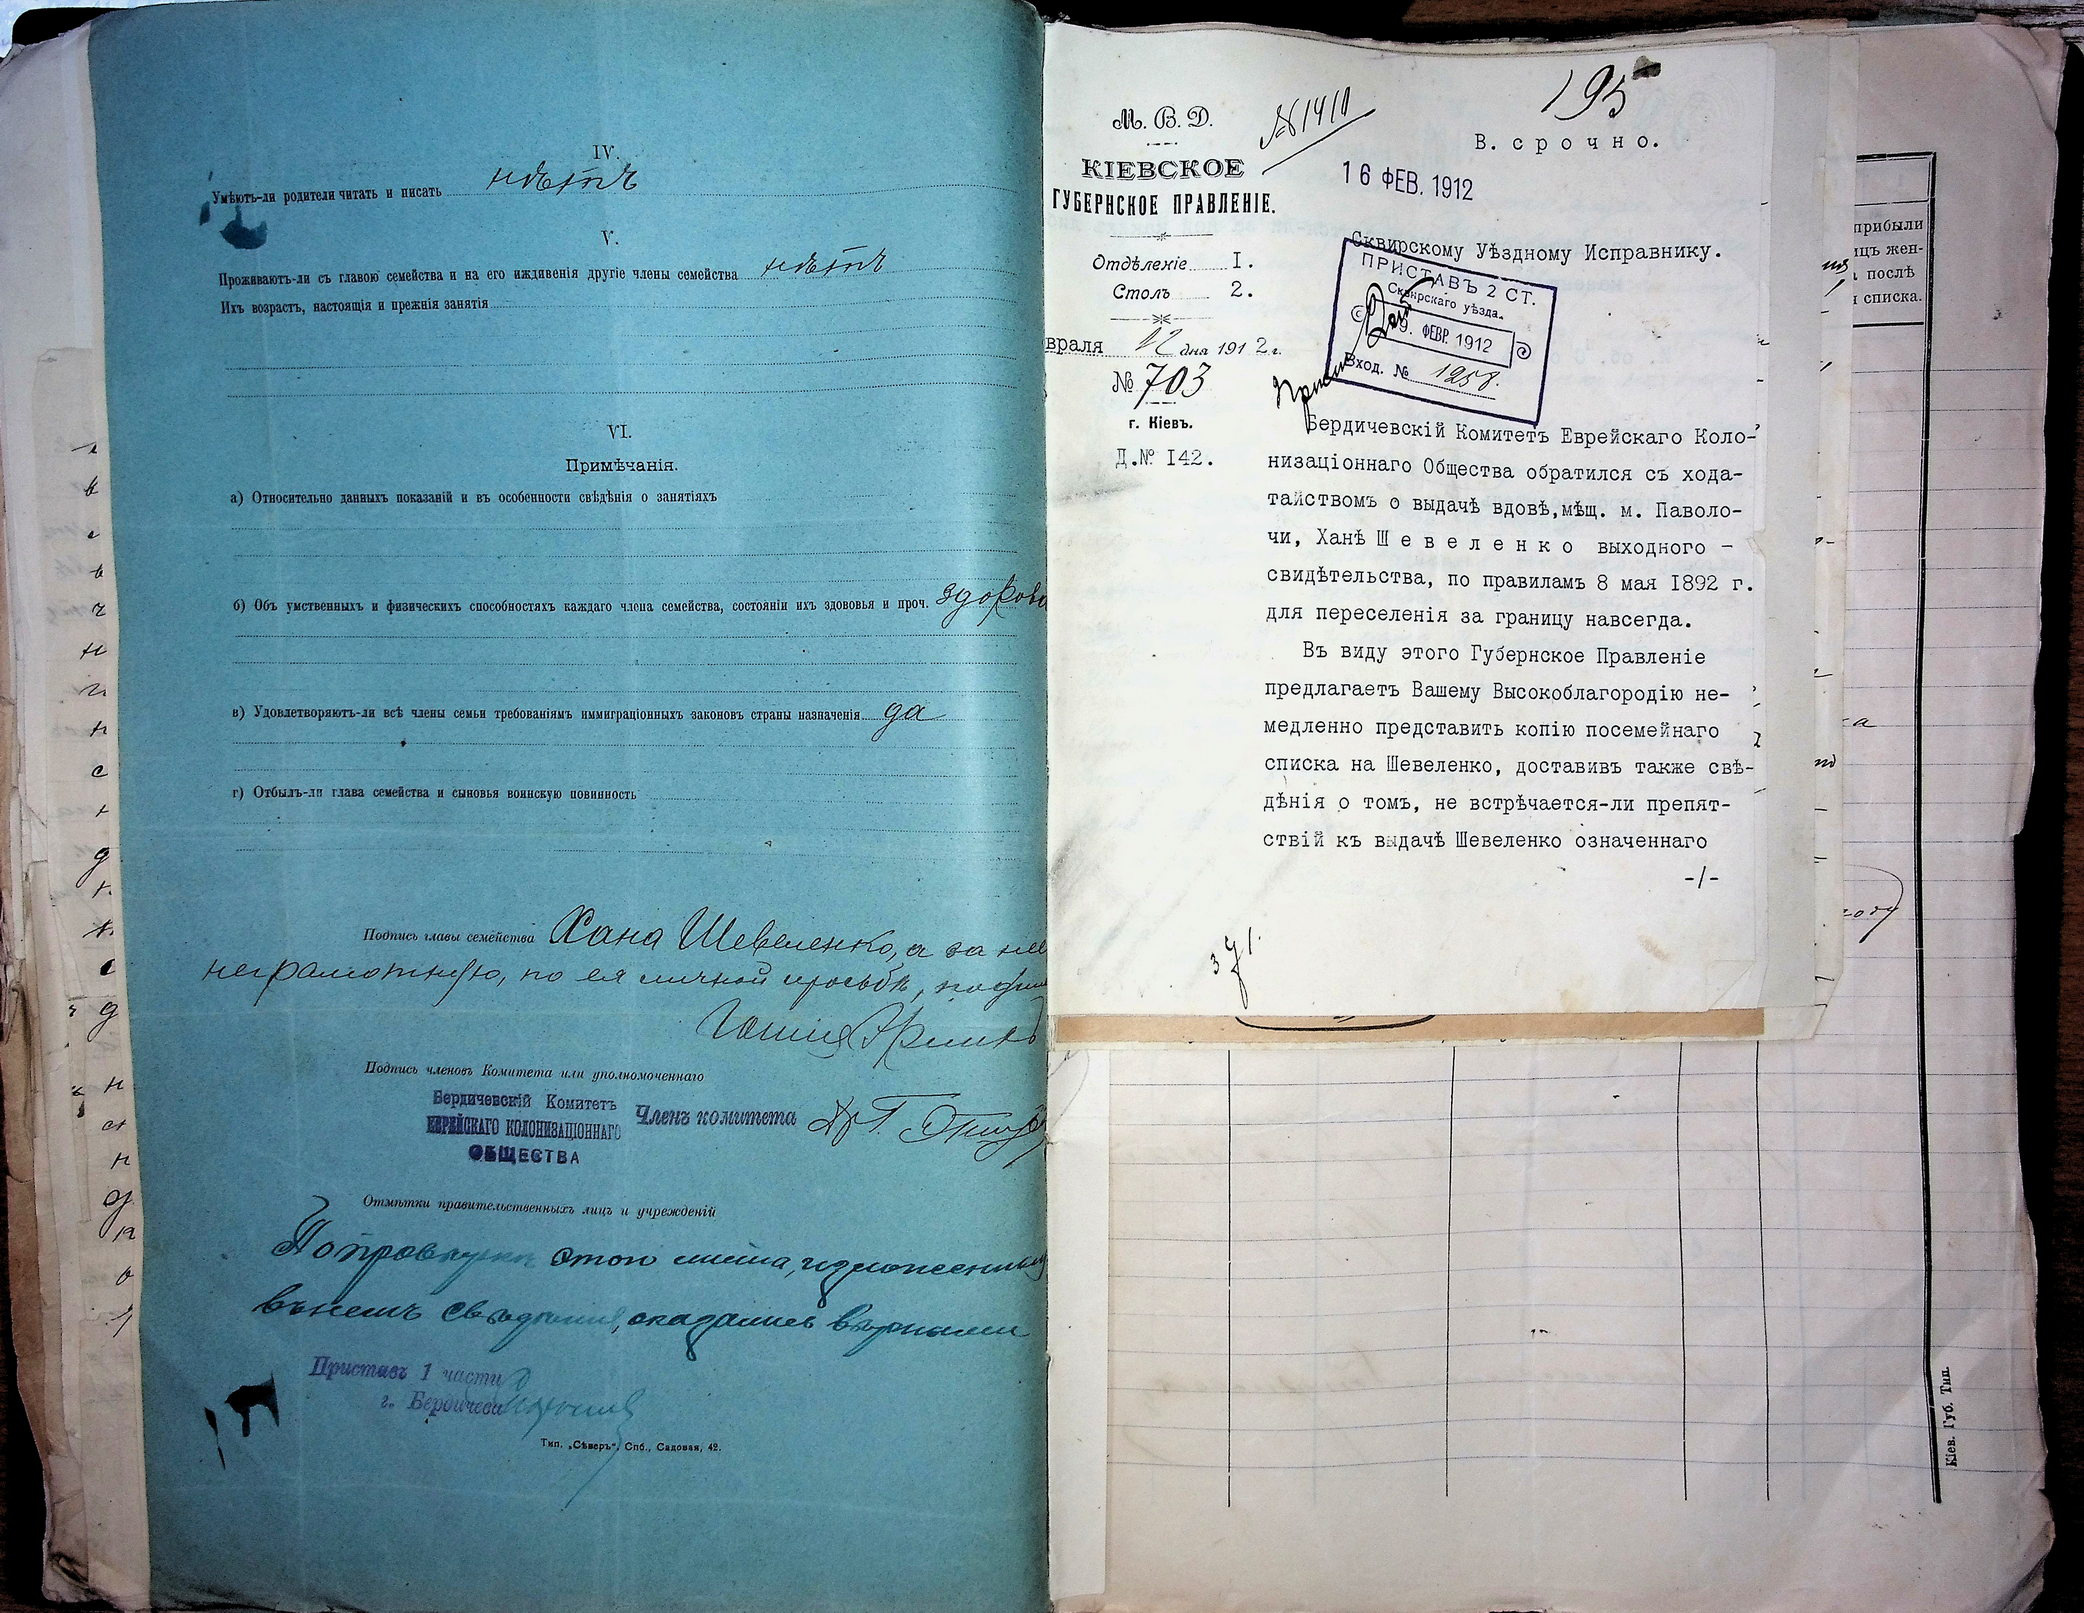 IV.
Умѣютъ-ли родители читать и писать нѣтъ
V.
Проживаютъ-ли съ главою семейства и на его иждивенія другіе члены семейства нѣтъ
Ихъ возрастъ, настоящія и прежнія занятія
VI.
Примѣчанія.
а) Относительно данныхъ показаній и въ особенности свѣдѣнія о занятіяхъ
б) Объ умственныхъ и физическихъ способностяхъ каждаго члена семейства, состояніи ихъ здововья и проч. здоровы
в) Удовлетворяютъ-ли всѣ члены семьи требованіямъ иммиграціонныхъ законовъ страны назначенія да
г) Отбылъ-ли глава семейства и сыновья воинскую повинность
Подпись главы семейства Хана Шевеленко, а за нее
неграмотную, по ея личной просьбѣ,
Подпись членовъ Комитета или уполномоченнаго
Бердичевскій Комитетъ
ЕВРЕЙСКАГО КОЛОНИЗАЦІОННАГО
ОБЩЕСТВА
Членъ комитета
Отмѣтки правительственныхъ лицъ и учрежденій
По провѣркѣ этого листа, изложенныя
въ немъ свѣдѣнія, оказались вѣрными
Приставъ 1 части
г. Бердичева
Тип. „Сѣверъ“, Спб., Садовая, 42.
195
М. В. Д.
№ 1410
В. срочно.
КІЕВСКОЕ
ГУБЕРНСКОЕ ПРАВЛЕНІЕ.
16 ФЕВ. 1912
Отдѣленіе I.
Столъ 2.
враля 12 дня 1912 г.
№ 703
г. Кіевъ.
Д.№ 142.
Сквирскому Уѣздному Исправнику.
ПРИСТАВЪ 2 СТ.
Сквирскаго уѣзда.
9. ФЕВР. 1912
Вход. № 1258.
Бердичевскій Комитетъ Еврейскаго Коло-
низаціоннаго Общества обратился съ хода-
тайствомъ о выдачѣ вдовѣ,мѣщ. м. Паволо-
чи, Ханѣ Шевеленко выходного -
свидѣтельства, по правиламъ 8 мая 1892 г.
для переселенія за границу навсегда.
Въ виду этого Губернское Правленіе
предлагаетъ Вашему Высокоблагородію не-
медленно представить копію посемейнаго
списка на Шевеленко, доставивъ также свѣ-
дѣнія о томъ, не встрѣчается-ли препят-
ствій къ выдачѣ Шевеленко означеннаго
-/-
прибыли
ицъ жен-
послѣ
списка.
Кіев. Губ. Тип.